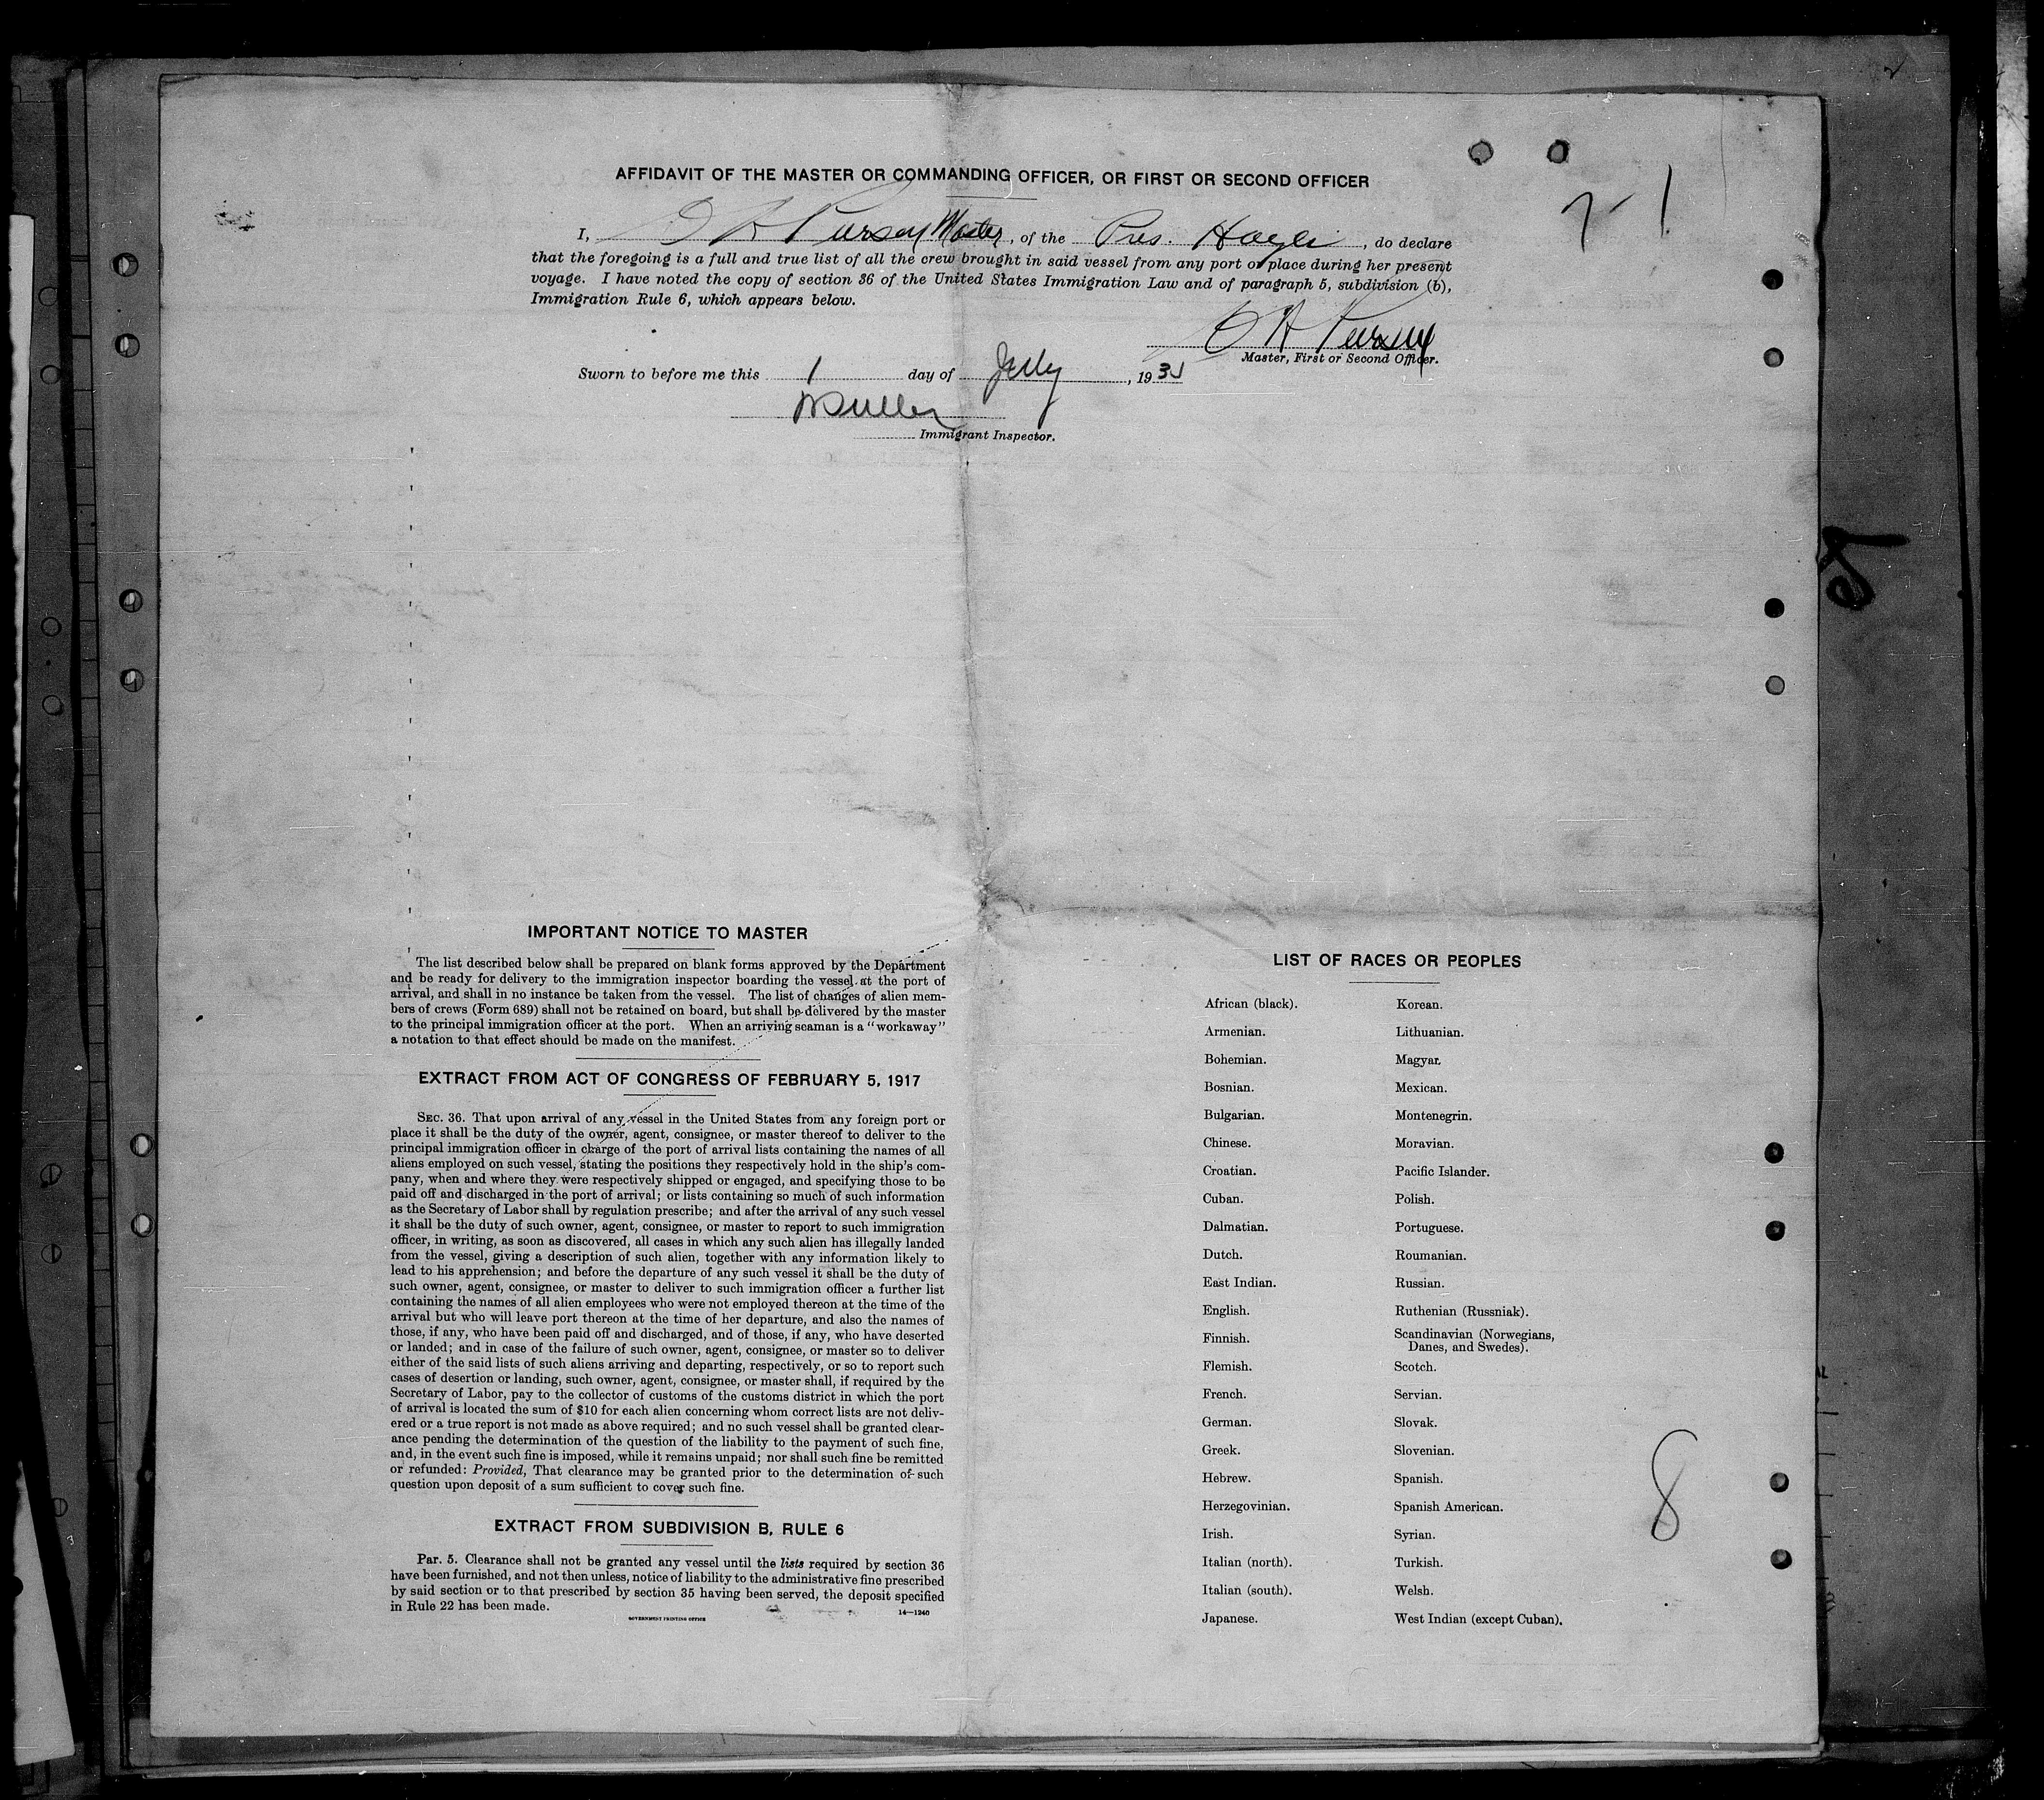 AFFIDAVIT OF THE MASTER OR COMMANDING OFFICER, OR FIRST OR SECOND OFFICER
7-1
I, Master, of the Pres. , do declare
that the foregoing is a full and true list of all the crew brought in said vessel from any port or place during her present
voyage. I have noted the copy of section 36 of the United States Immigration Law and of paragraph 5, subdivision (b),
Immigration Rule 6, which appears below.
Master, First or Second Officer.
Sworn to before me this 1 day of July, 19
Immigrant Inspector.
IMPORTANT NOTICE TO MASTER
The list described below shall be prepared on blank forms approved by the Department
and be ready for delivery to the immigration inspector boarding the vessel at the port of
arrival, and shall in no instance be taken from the vessel. The list of changes of alien mem-
bers of crews (Form 689) shall not be retained on board, but shall be delivered by the master
to the principal immigration officer at the port. When an arriving seaman is a "workaway"
a notation to that effect should be made on the manifest.
EXTRACT FROM ACT OF CONGRESS OF FEBRUARY 5, 1917
SEC. 36. That upon arrival of any vessel in the United States from any foreign port or
place it shall be the duty of the owner, agent, consignee, or master thereof to deliver to the
principal immigration officer in charge of the port of arrival lists containing the names of all
aliens employed on such vessel, stating the positions they respectively hold in the ship's com-
pany, when and where they were respectively shipped or engaged, and specifying those to be
paid off and discharged in the port of arrival; or lists containing so much of such information
as the Secretary of Labor shall by regulation prescribe; and after the arrival of any such vessel
it shall be the duty of such owner, agent, consignee, or master to report to such immigration
officer, in writing, as soon as discovered, all cases in which any such alien has illegally landed
from the vessel, giving a description of such alien, together with any information likely to
lead to his apprehension; and before the departure of any such vessel it shall be the duty of
such owner, agent, consignee, or master to deliver to such immigration officer a further list
containing the names of all alien employees who were not employed thereon at the time of the
arrival but who will leave port thereon at the time of her departure, and also the names of
those, if any, who have been paid off and discharged, and of those, if any, who have deserted
or landed; and in case of the failure of such owner, agent, consignee, or master so to deliver
either of the said lists of such aliens arriving and departing, respectively, or so to report such
cases of desertion or landing, such owner, agent, consignee, or master shall, if required by the
Secretary of Labor, pay to the collector of customs of the customs district in which the port
of arrival is located the sum of $10 for each alien concerning whom correct lists are not deliv-
ered or a true report is not made as above required; and no such vessel shall be granted clear-
ance pending the determination of the question of the liability to the payment of such fine,
and, in the event such fine is imposed, while it remains unpaid; nor shall such fine be remitted
or refunded: Provided, That clearance may be granted prior to the determination of such
question upon deposit of a sum sufficient to cover such fine.
EXTRACT FROM SUBDIVISION B, RULE 6
Par. 5. Clearance shall not be granted any vessel until the lists required by section 36
have been furnished, and not then unless, notice of liability to the administrative fine prescribed
by said section or to that prescribed by section 35 having been served, the deposit specified
in Rule 22 has been made.
GOVERNMENT PRINTING OFFICE 14—1240
LIST OF RACES OR PEOPLES
African (black). Korean.
Armenian. Lithuanian.
Bohemian. Magyar.
Bosnian. Mexican.
Bulgarian. Montenegrin.
Chinese. Moravian.
Croatian. Pacific Islander.
Cuban. Polish.
Dalmatian. Portuguese.
Dutch. Roumanian.
East Indian. Russian.
English. Ruthenian (Russniak).
Finnish. Scandinavian (Norwegians,
Danes, and Swedes).
Flemish. Scotch.
French. Servian.
German. Slovak.
Greek. Slovenian.
Hebrew. Spanish.
Herzegovinian. Spanish American.
Irish. Syrian.
Italian (north). Turkish.
Italian (south). Welsh.
Japanese. West Indian (except Cuban).
8